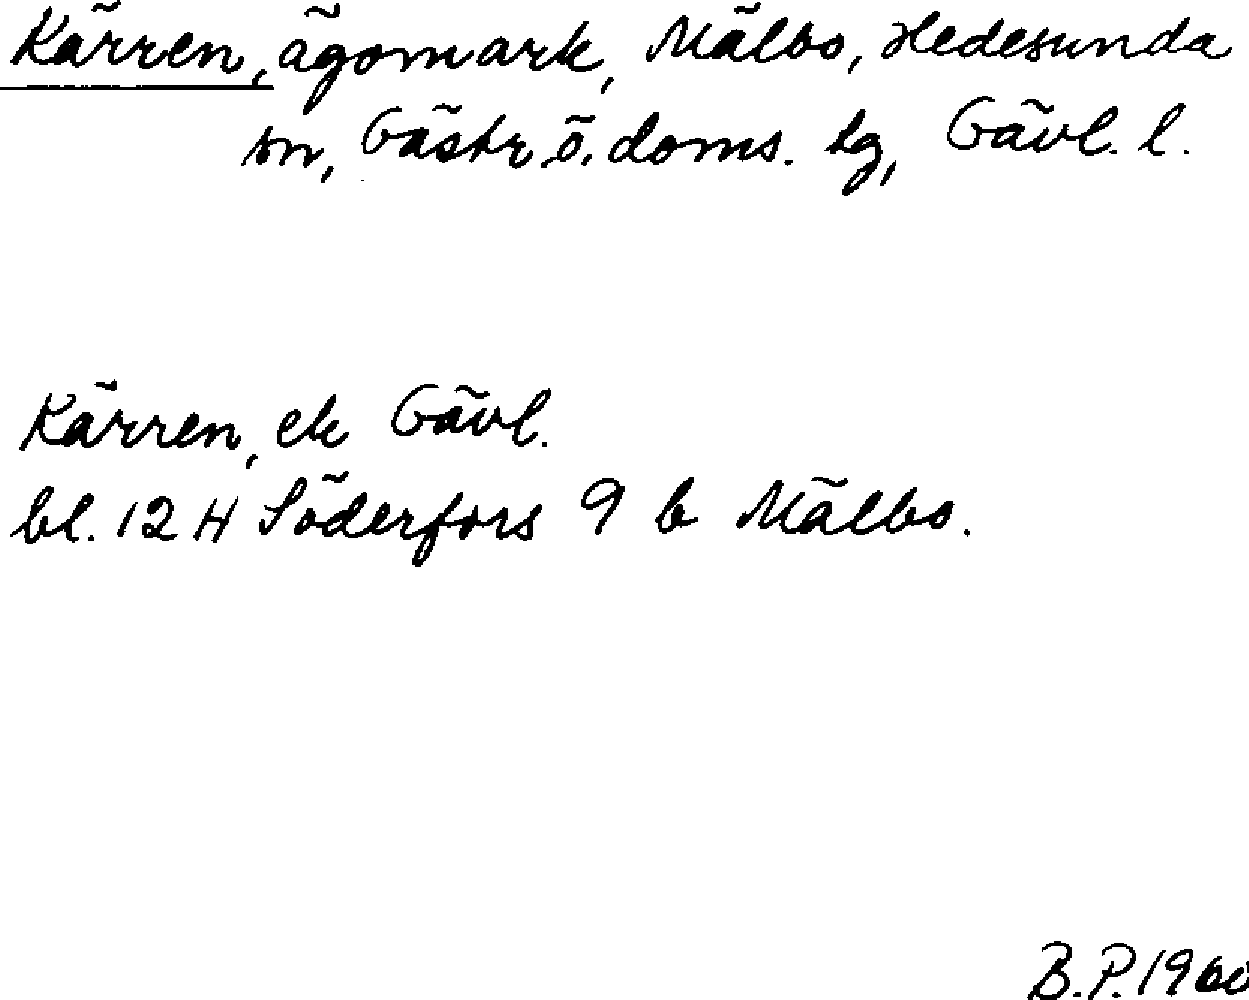 Kärren, ägomark, Mälbo, Hedesunda
sn, Gästr. ö. doms. lg, Gävl. l.
Kärren, ek Gävl.
bl. 12 H Söderfors 9 b Mälbo.
B.P. 1960